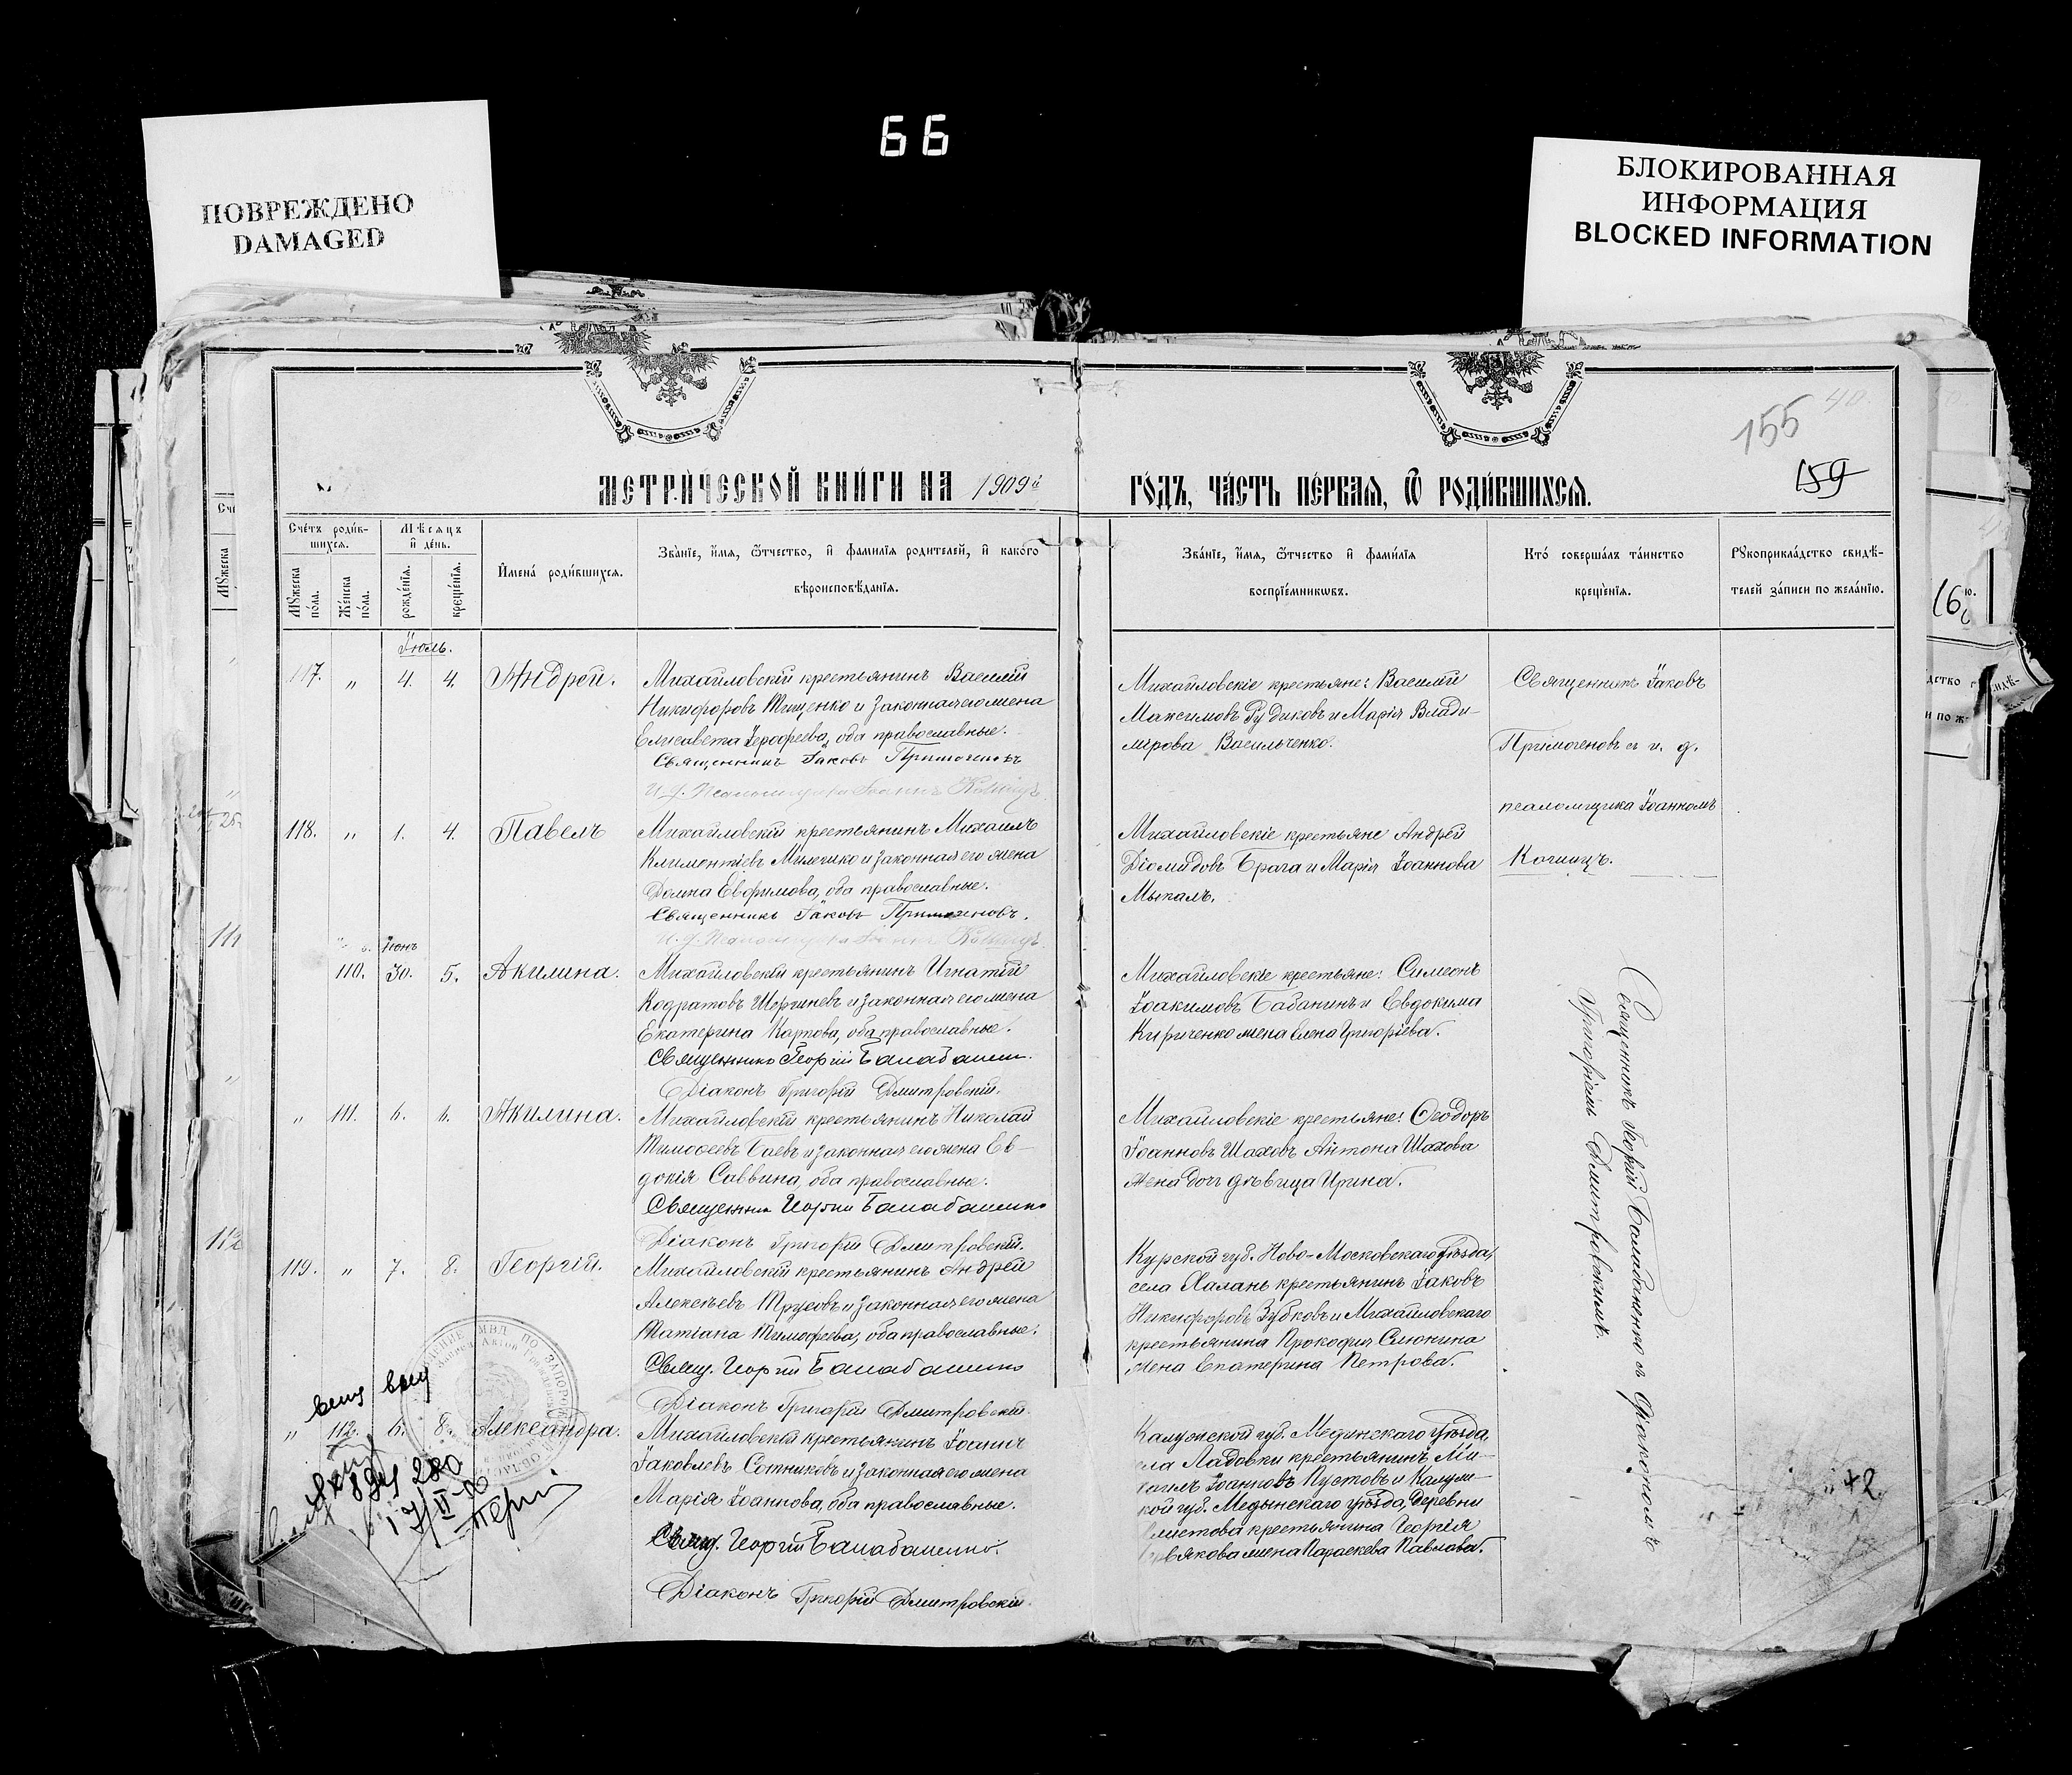 66
ПОВРЕЖДЕНО
DAMAGED
БЛОКИРОВАННАЯ
ИНФОРМАЦИЯ
BLOCKED INFORMATION
155
159
МЕТРИ́ЧЕСКОЙ КНИ́ГИ НА 1909й ГО́ДЪ, ЧА́СТЬ ПЕ́РВАЯ, Ѿ РОДИ́ВШИХСЯ.
Сче́тъ роди́в-
шихся.
Мѣсяцъ
и де́нь.
Мꙋжеска
по́ла.
Же́нска
по́ла.
рожде́нїя.
креще́нїя.
Имена́ роди́вшихся.
Зва́нїе, и́мя, ѻ́тчество, и фами́лїя роди́телей, и како́го
вѣроисповѣ́данїя.
Зва́нїе, и́мя, ѻ́тчество и фами́лїя
воспрїе́мниковъ.
Кто́ соверша́лъ та́инство
креще́нїя.
Рꙋкоприкла́дство свидѣ́-
телей за́писи по жела́нїю.
Іюль.
117. „ 4. 4. Андрей.
Михайловскій крестьянинъ Василій
Никифоровъ Тищенко и законная его жена
Елисавета Іерофеева, оба православные.
Священникъ Іаковъ Примогеновъ
И. д. Псаломщика Іоаннъ
Михайловскіе крестьяне: Василій
Максимовъ Рудиковъ и Марія Влади-
мірова Васильченко.
Священникъ Іаковъ
Примогеновъ съ и. д.
псаломщика Іоанномъ
118. „ 1. 4. Павелъ
Михайловскій крестьянинъ Михаилъ
Климентіевъ и законная его жена
Домна Евфимова, оба православные.
Священникъ Іаковъ Примогеновъ.
И. д. Псаломщика Іоаннъ
Михайловскіе крестьяне Андрей
Діомидовъ Брага и Марія Іоаннова
Мыкалъ.
Іюнь
110. 30. 5. Акилина.
Михайловскій крестьянинъ Игнатій
Кодратовъ и законная его жена
Екатерина Карпова, оба православные.
Священникъ Георгій Балабаненко.
Діаконъ Григорій Дмитровскій.
Михайловскіе крестьяне: Симеонъ
Іоакимовъ Бабанинъ и Евдокима
Кириченко жена Елена Григоріева.
Священникъ Георгій Балабаненко съ діакономъ
Григоріемъ Дмитровскимъ.
„ 111. 6. 6. Акилина.
Михайловскій крестьянинъ Николай
Тимофеевъ Баевъ и законная его жена Ев-
докія Саввина, оба православные.
Священник Георгій Балабаненко
Діаконъ Григорій Дмитровскій.
Михайловскіе крестьяне: Ѳеодоръ
Іоанновъ Шаховъ Антона Шахова
дѣвица Ирина.
119. „ 7. 8. Георгій.
Михайловскій крестьянинъ Андрей
Алексѣевъ Трусовъ и законная его жена
Татіана Тимофеева, оба православные.
Свящ. Георгій Балабаненко
Діаконъ Григорій Дмитровскій.
Курской губ. Ново-Московскаго уѣзда,
села Халань крестьянинъ Іаковъ
Никифоровъ Зубковъ и Михайловскаго
крестьянина Прокофія Слюнина
жена Екатерина Петрова.
„ 112. 6. 8. Александра.
Михайловскій крестьянинъ Іоаннъ
Іаковлевъ Сотниковъ и законная его жена
Марія Іоаннова, оба православные.
Свящ. Георгій Балабаненко.
Діаконъ Григорій Дмитровскій.
Калужской губ. Медынскаго уѣзда,
крестьянинъ Ми-
Іоанновъ Пустовъ и Калуж-
кой губ. Медынскаго уѣзда, деревни
крестьянина Георгія
жена Параскева Павлова.